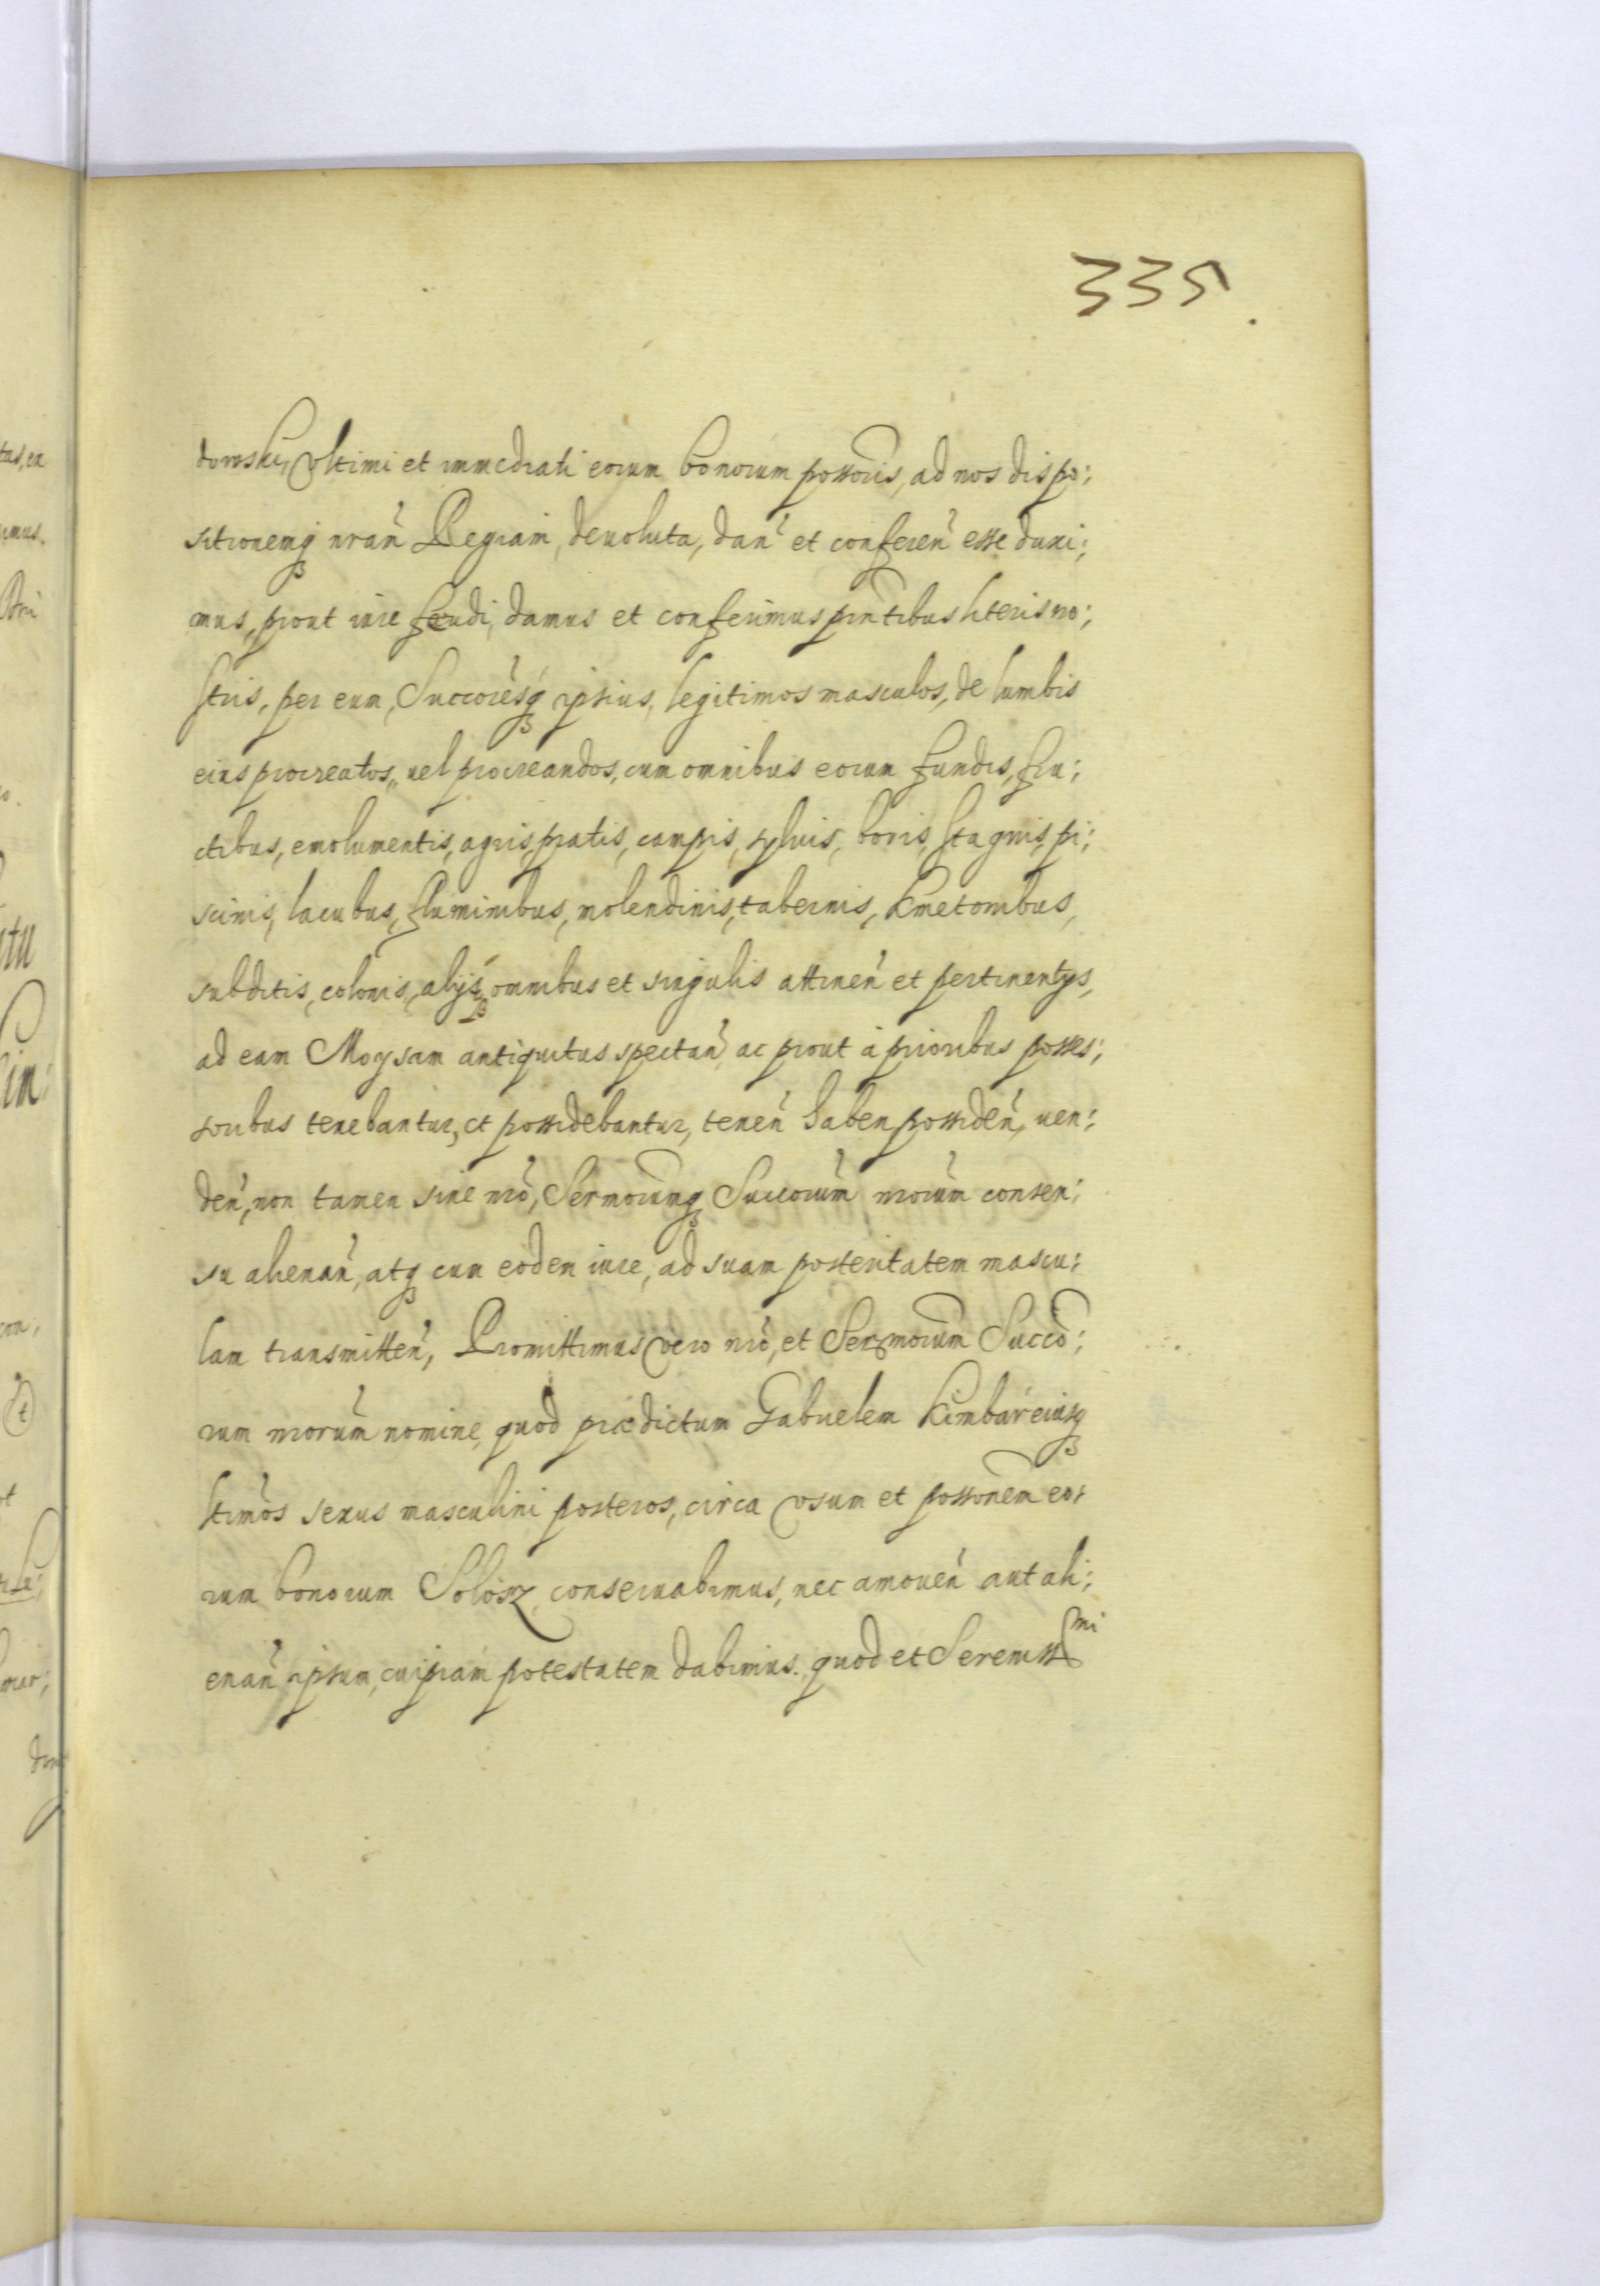 335.
dowski, Vltimi et immediati eorum bonorum possoris, ad nos dispo:
sitionemq nrãm Regiam, deuoluta, dan̄ et conferen̄ esse duxi:
mus, prout iure feudi, damus et conferimus pñtibus literis no:
stris, per eum, Succoresq ipsius, legitimos masculos, de lumbis
eius procreatos, uel procreandos, cum omnibus eorum fundis, fru:
ctibus, emolumentis, agris, pratis, campis, syluis, boris, stagnis, pi:
scinis, lacubus, fluminibus, molendinis, tabernis, Kmetonibus,
subditis, colonis, alijsq omnibus et singulis attinen̄ et pertinentys,
ad eam Moysam antiquitus spectan̄, ac prout á prioribus posses:
soribus tenebantur, et possidebantur, tenen̄ haben possiden̄, uen:
den̄, non tamen sine nrõ, Sermorumq Succorum̄ nrorum̄ consen:
su alienan̄, atq cum eodem iure, ad suam posteritatem mascu:
lam transmitten̄, Promittimus vero nrõ, et Sermorum̄ Succo:
rum nrorum̄ nomine, quod prædictum Gabrielem Kimbar eiusq
ltimõs sexus masculini posteros, circa vsum et possonem̄ eo:
rum bonorum Solosz conseruabimus, nec amouen̄ aut ali:
enan̄ ipsum, cuipiam potestatem dabimus. quod et Sereniss mi